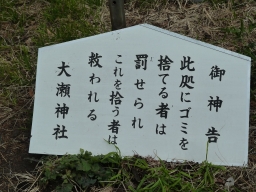 御神告
此処にゴミを
捨てる者は
罰せられ
これを拾う者は
救われる
大瀬神社